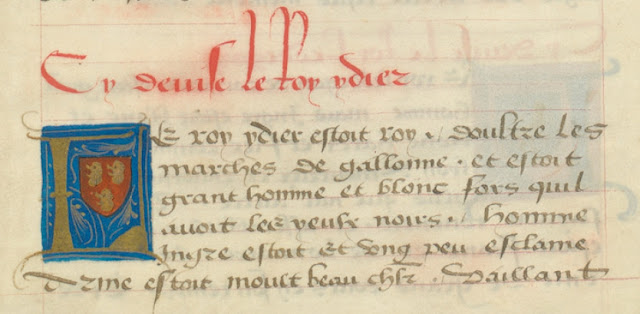 Cy deuise le Roy ydier
LE roy ydier estoit roy . doultre les
marches de gallonne . et estoit
grant homme et blonc fors quil
auoit les yeulx noirs . homme
Ingre estoit Et vong peu esclame
Arme estoit moult beau chlr . Vaillant